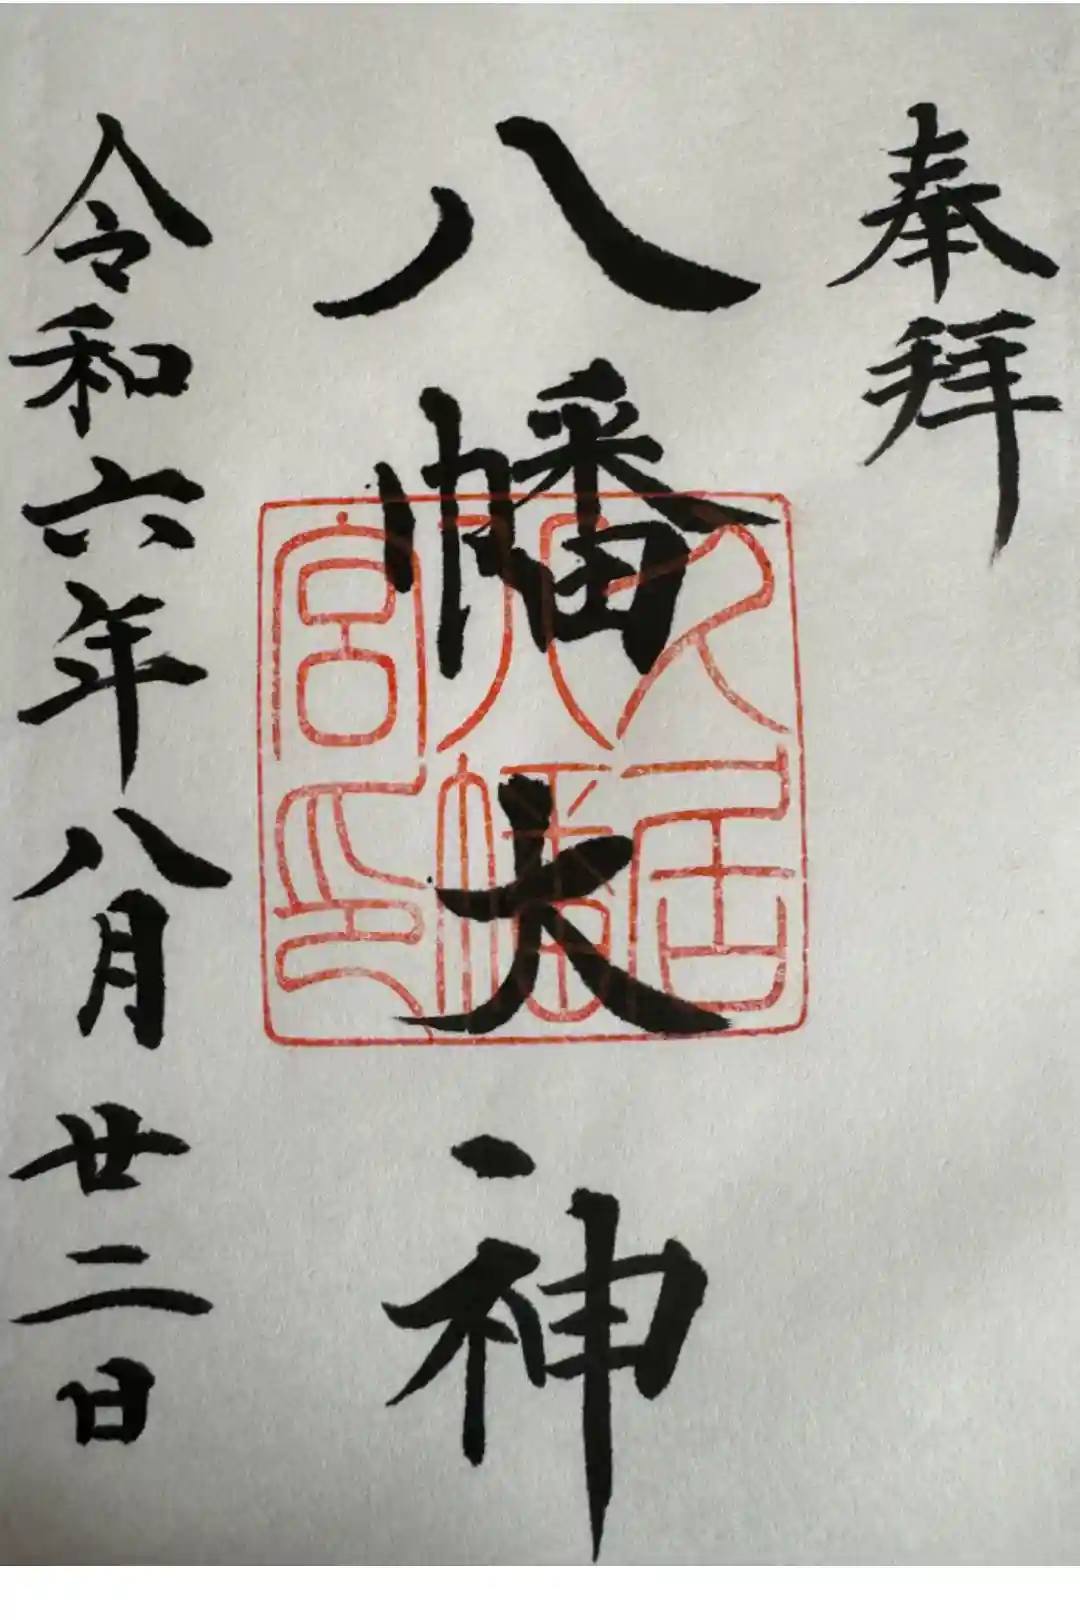 奉拝
八幡大神
久居
八幡
宮印
令和六年八月廿二日